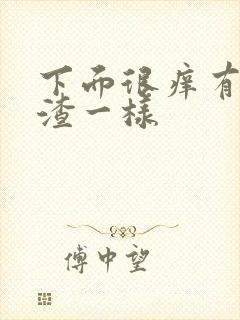 下面很痒有
渣一样
傅中望